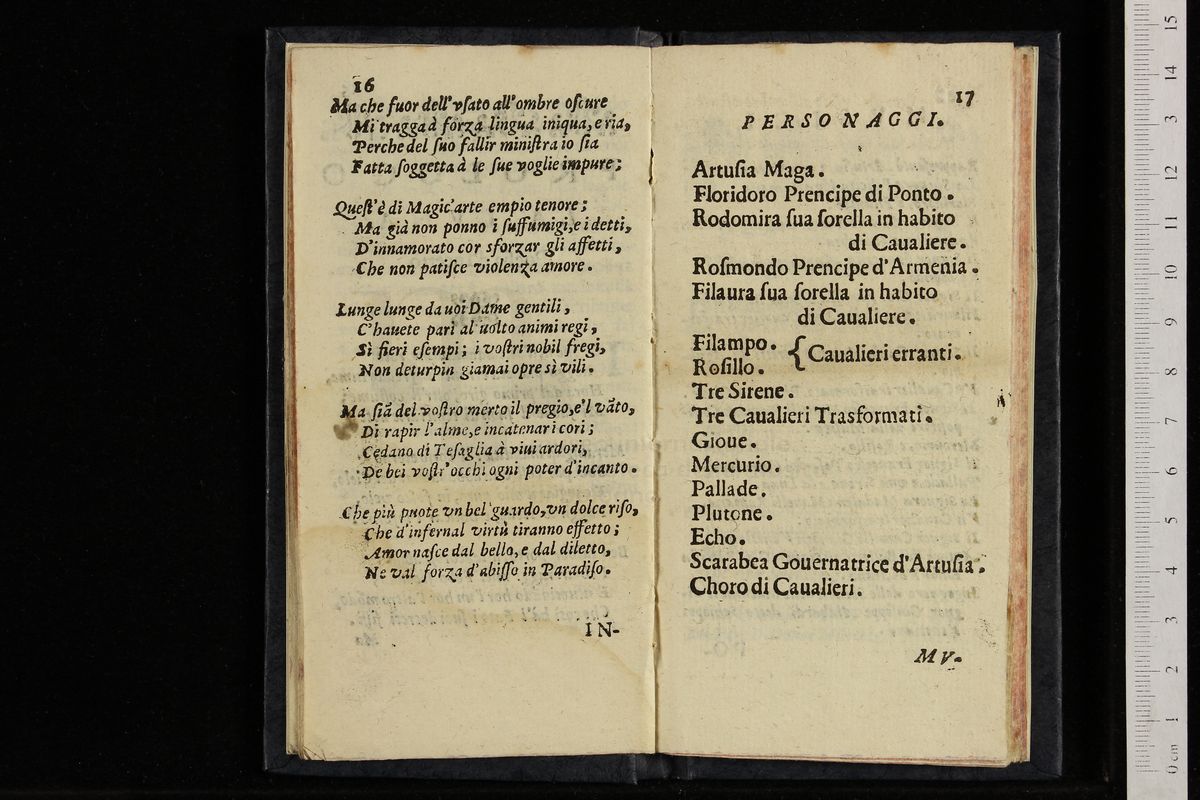 16
Ma che fuor dell'vſato all'ombre oſcure
Mi tragga à forza lingua iniqua, e ria,
Perche del ſuo fallir miniſtra io ſia
Fatta ſoggetta à le ſue voglie impure;
Queſt'è di Magic'arte empio tenore;
Ma già non ponno i ſuffumigi, e i detti,
D'innamorato cor sforzar gli affetti,
Che non patiſce violenza amore.
Lunge lunge da uoi Dame gentili,
C'hauete pari al uolto animi regi,
Sì fieri eſempi; i voſtri nobil fregi,
Non deturpin giamai opre sì vili.
Ma ſia del voſtro merto il pregio, e'l vāto,
Di rapir l'alme, e incatenar i cori;
Cedano di Teſaglia à viui ardori,
De bei voſtr'occhi ogni poter d'incanto.
Che più puote vn bel guardo, vn dolce riſo,
Che d'infernal virtù tiranno effetto;
Amor naſce dal bello, e dal diletto,
Ne val forza d'abiſſo in Paradiſo.
IN-
17
PERSONAGGI.
Artuſia Maga.
Floridoro Prencipe di Ponto.
Rodomira ſua ſorella in habito
di Caualiere.
Roſmondo Prencipe d'Armenia.
Filaura ſua ſorella in habito
di Caualiere.
Filampo. { Caualieri erranti.
Roſillo.
Tre Sirene.
Tre Caualieri Trasformati.
Gioue.
Mercurio.
Pallade.
Plutone.
Echo.
Scarabea Gouernatrice d'Artuſia.
Choro di Caualieri.
MV.
0 cm 1 2 3 4 5 6 7 8 9 10 11 12 3 14 15